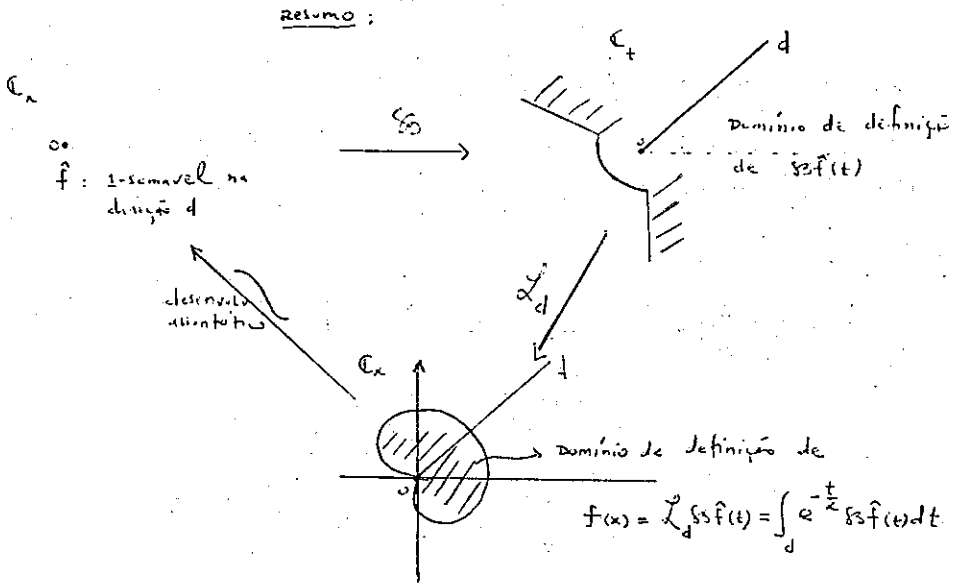 Resumo :
ℂ_x
0•
f̂ : 1-somável na
direção d
𝓑
ℂ_t
d
0
Domínio de definição
de 𝓑f̂(t)
desenvolv.
assintótico
𝓛_d
ℂ_x
d
0
Domínio de definição de
f(x) = 𝓛_d 𝓑f̂(t) = ∫_d e^{-t/x} 𝓑f̂(t) dt